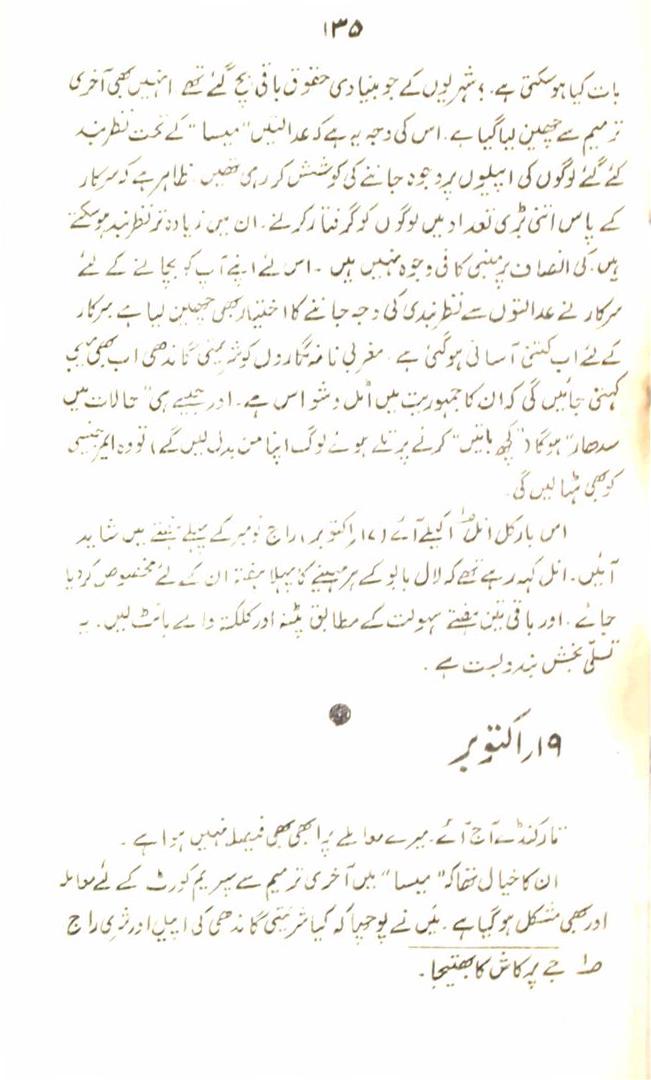 ۱۳۵
بات کیا ہوسکتی ہے۔ ؟ شہریوں کے جو بنیادی حقوق باقی بچ گئے تھے انہیں بھی آخری
ترمیم سے چھین لیا گیا ہے۔ اس کی وجہ یہ ہے کہ عدالتیں ”میسا“ کے تحت نظر بند
کئے گئے لوگوں کی اپیلوں پر وجوہ جاننے کی کوشش کر رہی تھیں۔ ظاہر ہے کہ سرکار
کے پاس اتنی بڑی تعداد میں لوگوں کو گرفتار کرنے۔ ان میں زیادہ تر نظر بند ہوسکتے
ہیں۔ کی انصاف پر مبنی کافی وجوہ نہیں ہیں ۔ اس لئے اپنے آپ کو بچانے کے لئے
سرکار نے عدالتوں سے نظر بندی کی وجہ جاننے کا اختیار بھی چھین لیا ہے۔ سرکار
کے لئے اب کتنی آسانی ہوگئی ہے۔ مغربی نامہ نگاروں کو شریمتی گاندھی اب بھی یہی
کہتی جائیں گی کہ ان کا جمہوریت میں اٹل وشواس ہے۔ اور جیسے ہی ”حالات میں
سدھار“ ہوگا (”کچھ باتیں“ کرنے پر تلے ہوئے لوگ اپنا من بدل لیں گے) تو وہ ایمرجنسی
کو بھی ہٹا لیں گی۔
اس بار کل انل ؎۱ اکیلے آئے (۱۷؍اکتوبر) راج نومبر کے پہلے ہفتے میں شاید
آئیں۔ انل کہہ رہے تھے کہ لال بابو کے ہر مہینے کا پہلا ہفتہ ان کے لئے مخصوص کر دیا
جائے۔ اور باقی تین ہفتے سہولت کے مطابق پٹنہ اور کلکتہ والے بانٹ لیں۔ یہ
تسلی بخش بندوبست ہے ۔
۱۹؍اکتوبر
تارکنڈے آج آئے۔ میرے معاملے پر ابھی بھی فیصلہ نہیں ہوا ہے ۔
ان کا خیال تھا کہ ”میسا“ میں آخری ترمیم سے سپریم کورٹ کے لئے معاملہ
اور بھی مشکل ہوگیا ہے۔ میں نے پوچھا کہ کیا شریمتی گاندھی کی اپیل اور شری راج
؎۱ جے پرکاش کا بھتیجا۔